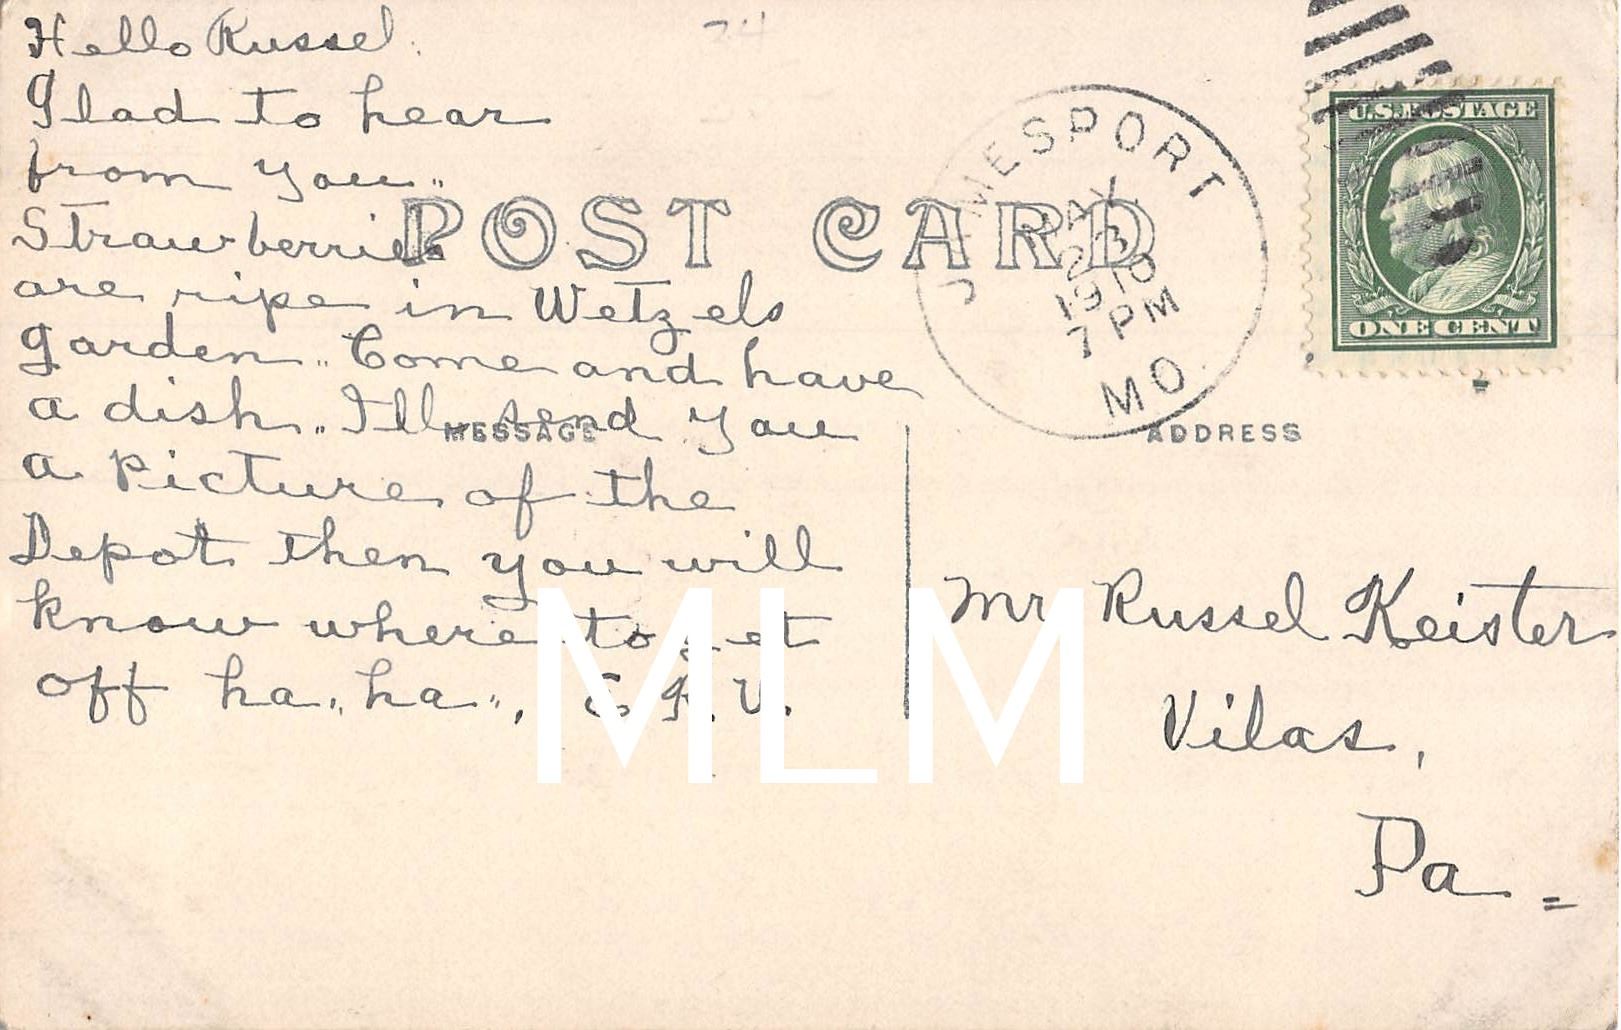 Hello Russel.
Glad to hear
from you..
Strawberries
are ripe in Wetzels
garden.. Come and have
a dish.. I'll send you
a picture of the
Depot then you will
know where to get
off ha.. ha..,
74
POST CARD
MESSAGE
JAMESPORT
MAY
23
1910
7 PM
MO.
U.S. POSTAGE
ONE CENT
ADDRESS
Mr Russel Keister
Vilas,
Pa =
MLM